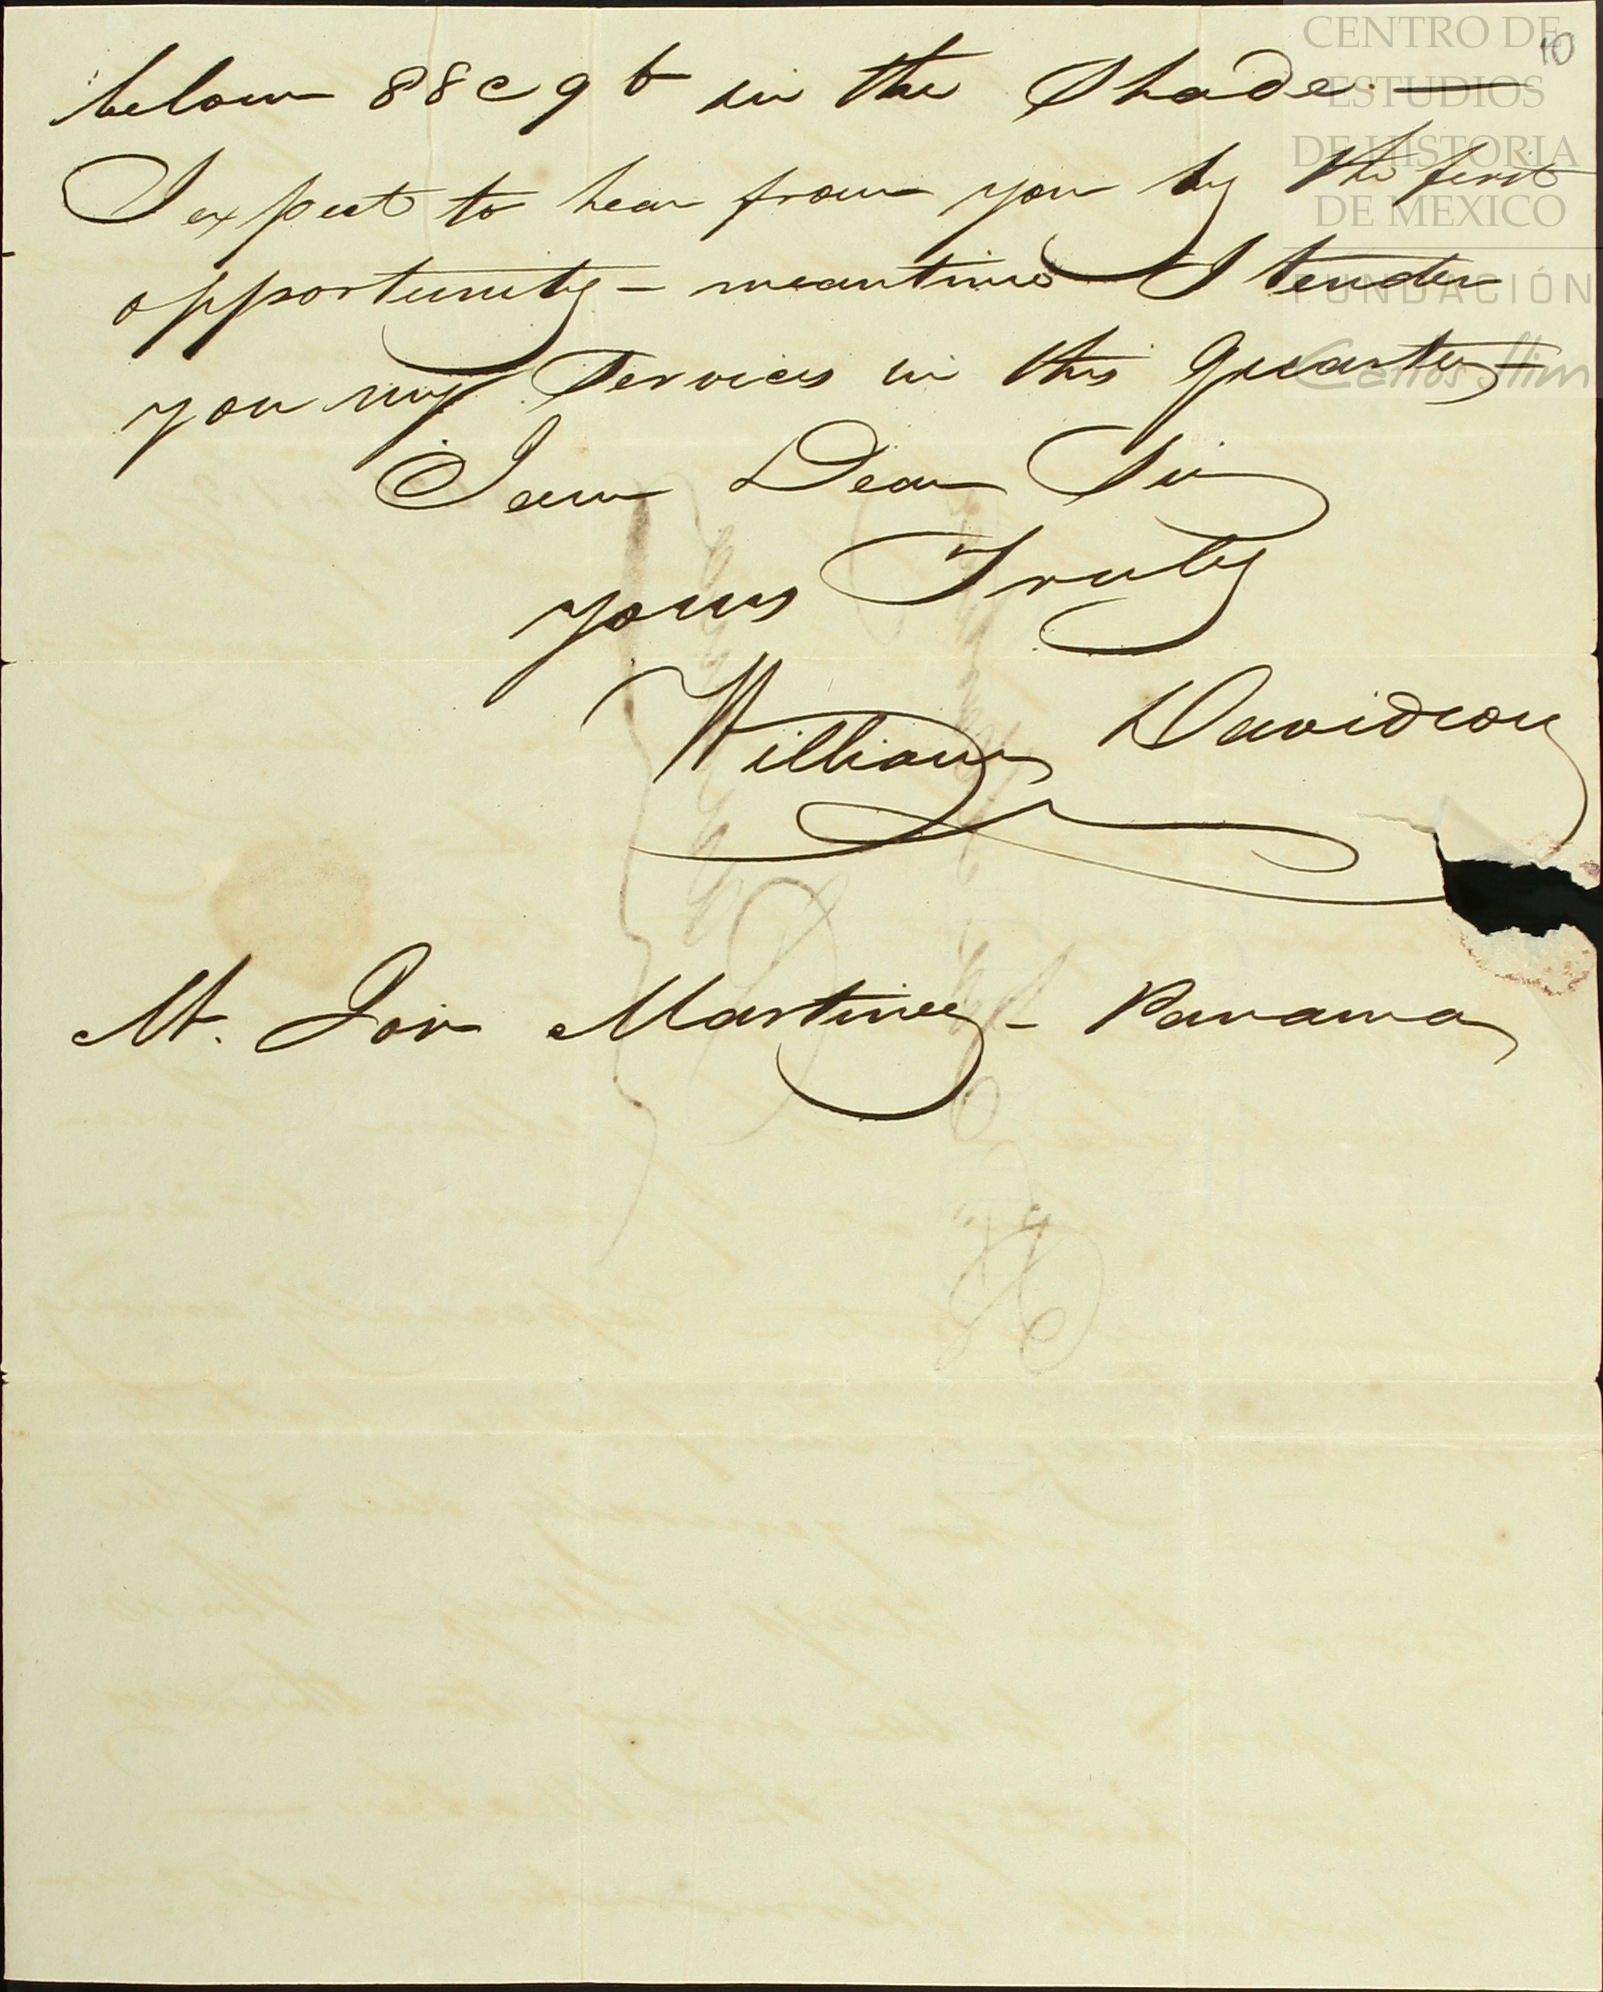 10
CENTRO DE
ESTUDIOS
DE HISTORIA
DE MEXICO
FUNDACIÓN
Carlos Slim
below 88 c 90 in the Shade. —
I expect to hear from you by the first
opportunity – meantime I tender
you my Services in this quarter –
I am Dear Sir
yours Truly
William Davidson
Mr. Martinez – Panama